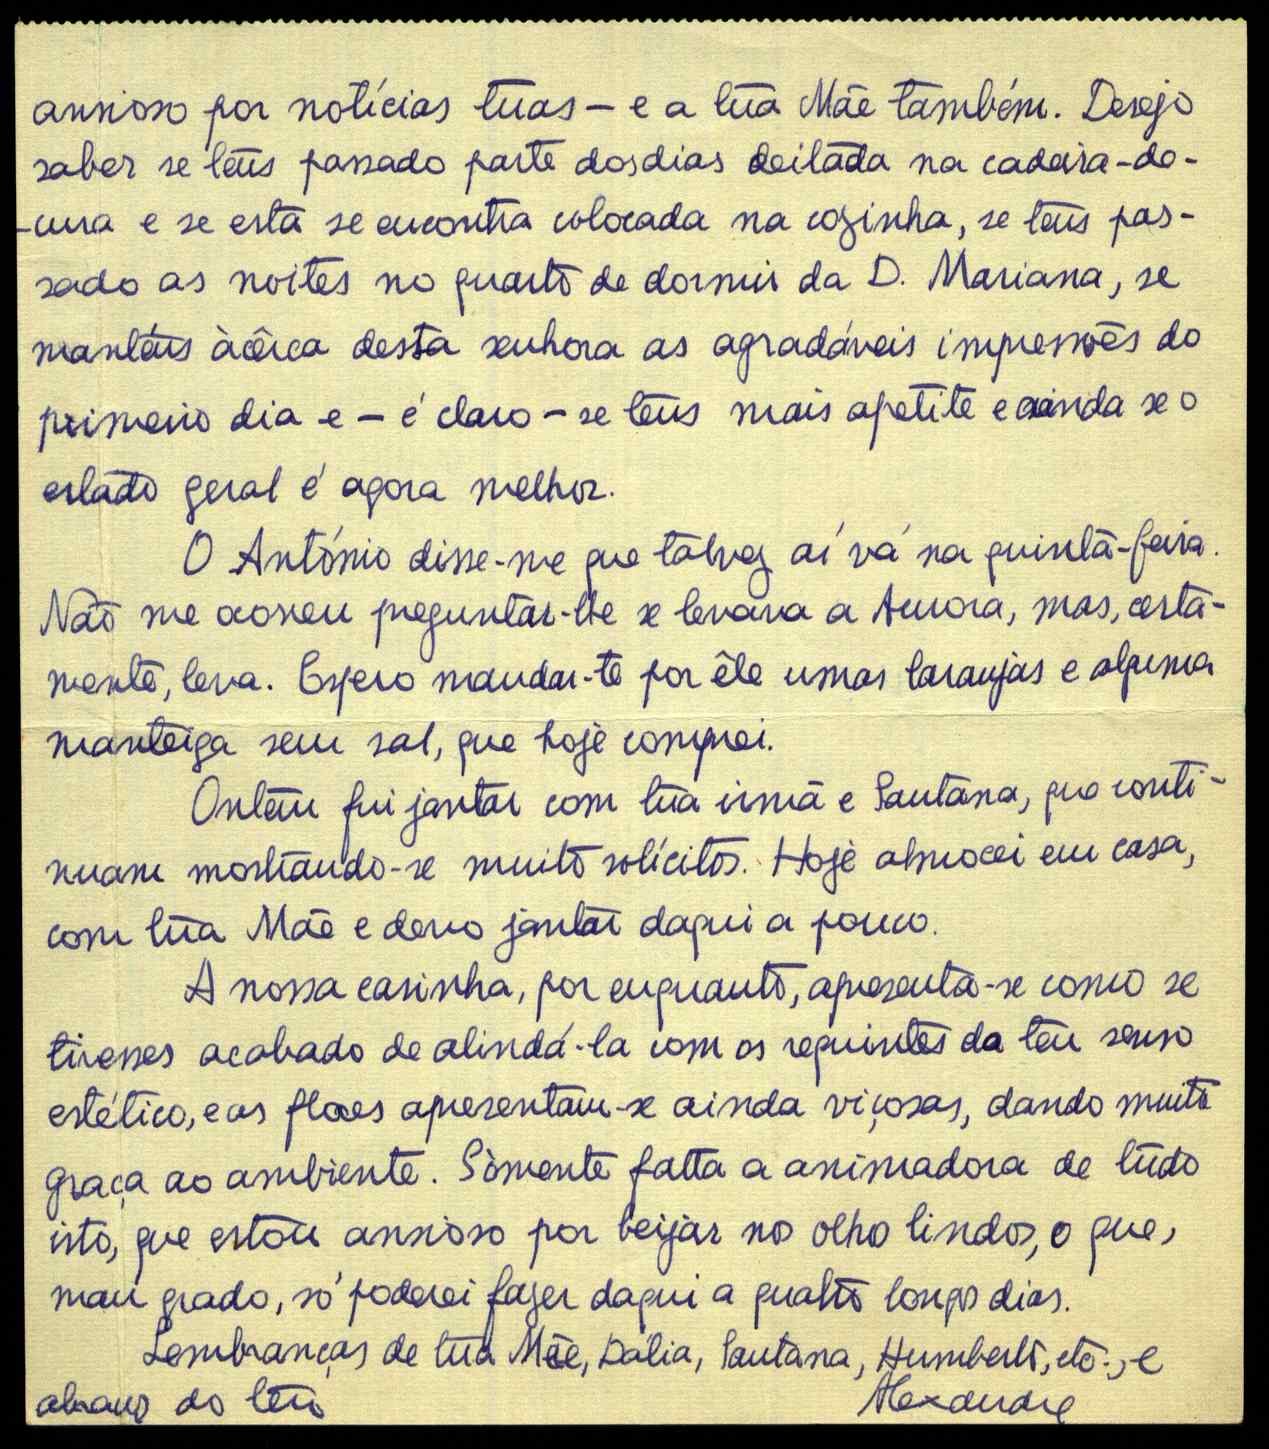 ansioso por notícias tuas – e a tua Mãe também. Desejo
saber se tens passado parte dos dias deitada na cadeira-do-
-cura e se esta se encontra colocada na cozinha, se tens pas-
sado as noites no quarto de dormir da D. Mariana, se
manténs àcêrca desta senhora as agradáveis impressões do
primeiro dia e – é claro – se tens mais apetite e ainda se o
estado geral é agora melhor.
O António disse-me que talvez aí vá na quinta-feira.
Não me ocorreu preguntar-lhe se levava a Aurora, mas, certa-
mente, leva. Espero mandar-te por êle umas laranjas e alguma
manteiga sem sal, que hoje comprei.
Ontem fui jantar com tua irmã e Santana, que conti-
nuam mostrando-se muito solícitos. Hoje almocei em casa,
com tua Mãe e devo jantar daqui a pouco.
A nossa casinha, por enquanto, apresenta-se como se
tivesses acabado de alindá-la com os requintes do teu senso
estético, e as flores apresentam-se ainda viçosas, dando muita
graça ao ambiente. Sòmente falta a animadora de tudo
isto, que estou ansioso por beijar nos olhos lindos, o que,
mau grado, só poderei fazer daqui a quatro longos dias.
Lembranças de tua Mãe, Dália, Santana, Humberto, etc., e
abraços do teu Alexandre